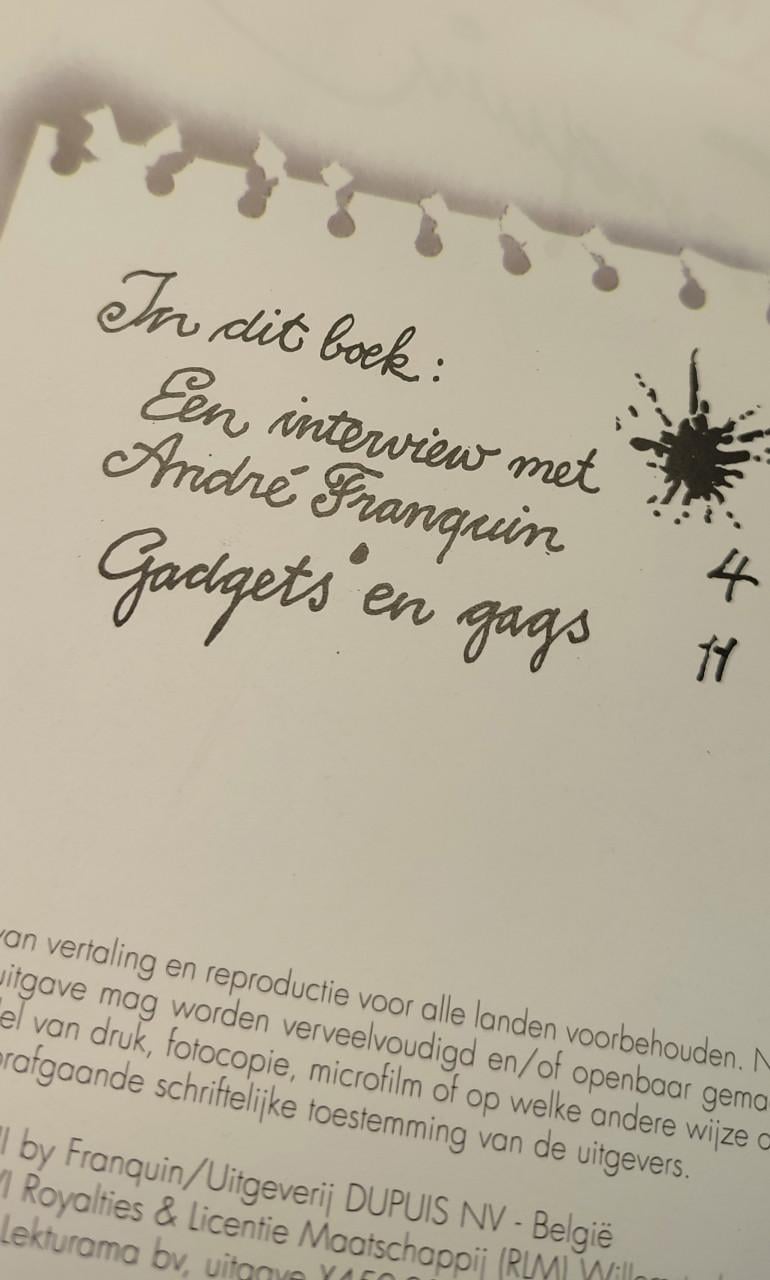 In dit boek:
Een interview met
André Franquin 4
Gadgets en gags 11
van vertaling en reproductie voor alle landen voorbehouden.
uitgave mag worden verveelvoudigd en/of openbaar gema
el van druk, fotocopie, microfilm of op welke andere wijze
orafgaande schriftelijke toestemming van de uitgevers.
by Franquin/Uitgeverij DUPUIS NV - België
Royalties & Licentie Maatschappij (RLM)
Lekturama bv, uitgave